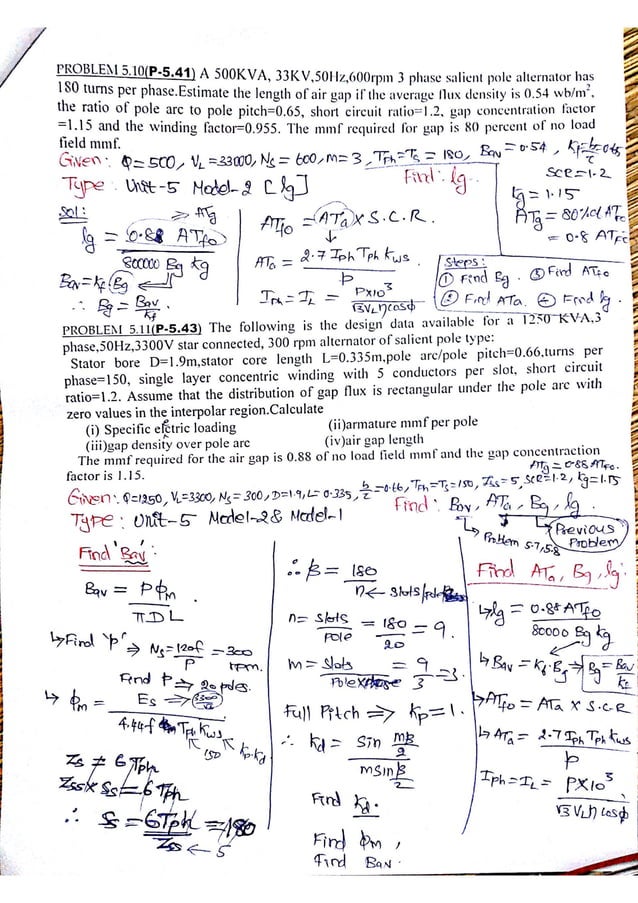 PROBLEM 5.10(P-5.41) A 500KVA, 33KV,50Hz,600rpm 3 phase salient pole alternator has
180 turns per phase.Estimate the length of air gap if the average flux density is 0.54 wb/m².
the ratio of pole arc to pole pitch=0.65, short circuit ratio=1.2, gap concentration factor
=1.15 and the winding factor=0.955. The mmf required for gap is 80 percent of no load
field mmf.
Given: Q=500, VL=33000, Ns=600, m=3, Tph=Ts=180, Bav=0.54, Kf=b/τ=0.65
SCR=1.2
Kg=1.15
ATg=80% of ATfo
=0.8 ATfo
Type: Unit-5 Model-2 [lg]
Find: lg.
Sol:
→ ATg
lg = 0.88 ATfo / 800000 Bg Kg
Bav=Kf Bg
∴ Bg = Bav/Kf
ATfo = ATa × S.C.R.
ATa = 2.7 Iph Tph Kws / p
Iph=IL = P×10³ / √3 VL η cosφ
Steps:
① Find Bg. ③ Find ATfo
② Find ATa. ④ Find lg.
PROBLEM 5.11(P-5.43) The following is the design data available for a 1250 KVA,3
phase,50Hz,3300V star connected, 300 rpm alternator of salient pole type:
Stator bore D=1.9m,stator core length L=0.335m,pole arc/pole pitch=0.66,turns per
phase=150, single layer concentric winding with 5 conductors per slot, short circuit
ratio=1.2. Assume that the distribution of gap flux is rectangular under the pole arc with
zero values in the interpolar region.Calculate
(i) Specific elctric loading (ii)armature mmf per pole
(iii)gap density over pole arc (iv)air gap length
The mmf required for the air gap is 0.88 of no load field mmf and the gap concentraction
factor is 1.15.
ATg=0.88 ATfo.
Given: Q=1250, VL=3300, Ns=300, D=1.9, L=0.335, b/τ=0.66, Tph=Ts=150, Zss=5, SCR=1.2, Kg=1.15
Type: Unit-5 Model-2 & Model-1
Find: Bav, ATa, Bg, lg.
→ Problem 5.7, 5.8
→ Previous Problem
Find 'Bav':
Bav = Pφm / πDL
↳ Find 'p' ⇒ Ns=120f/P =300 rpm.
Find P → 20 poles.
↳ φm = Es ⇒ 3300/√3 / 4.44f Tph Kws
150 Kp.Kd
Zs ≠ 6Tph
Zss × Ss = 6Tph
∴ Ss = 6Tph/Zss = 180
← 5
∴ β = 180 / n ← slots/pole
n = Slots/Pole = 180/20 = 9.
m = Slots/Pole×phase = 9/3 = 3.
Full Pitch ⇒ Kp=1.
∴ Kd = sin mβ/2 / m sin β/2
Find Kd.
Find φm,
Find Bav.
Find ATa, Bg, lg:
↳ lg = 0.88 ATfo / 80000 Bg Kg
↳ Bav = Kf.Bg ⇒ Bg = Bav/Kf
↳ ATfo = ATa × S.C.R
↳ ATa = 2.7 Iph Tph Kws / p
Iph=IL = P×10³ / √3 VL η cosφ